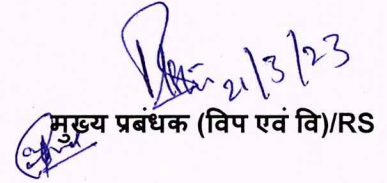 21/3/23
मुख्य प्रबंधक (विप एवं वि)/RS